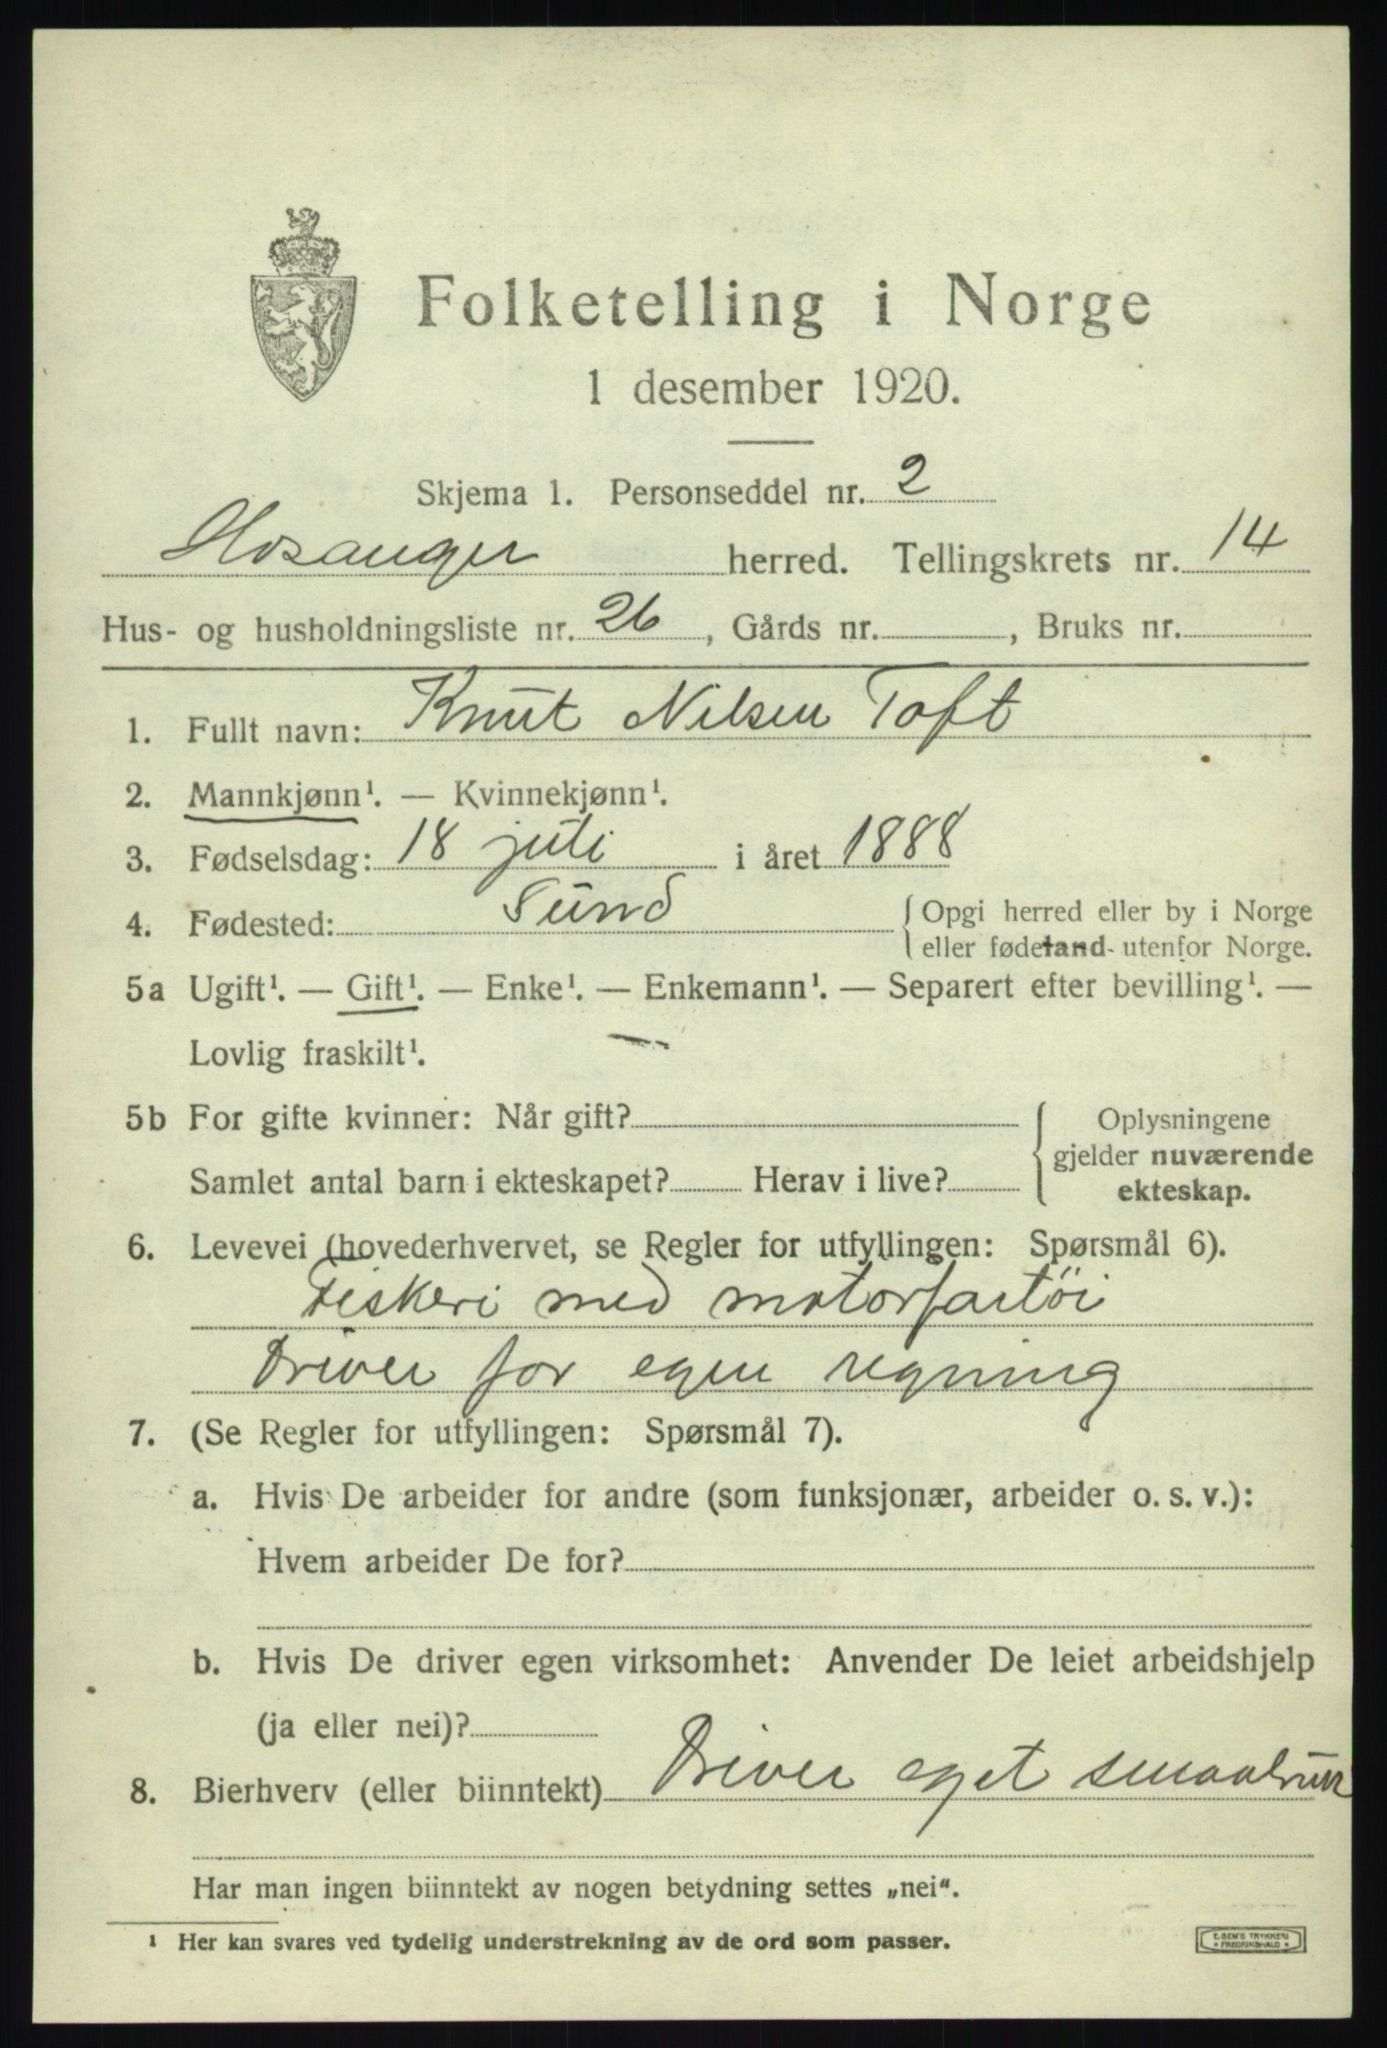 Folketelling i Norge
1 desember 1920.
Skjema 1. Personseddel nr. 2
Hosanger herred. Tellingskrets nr. 14
Hus- og husholdningsliste nr. 26, Gårds nr. , Bruks nr.
1. Fullt navn: Knut Nilsen Toft
2. Mannkjønn¹. — Kvinnekjønn¹.
3. Fødselsdag: 18 juli i året 1888
4. Fødested: Sund { Opgi herred eller by i Norge
eller fødeland utenfor Norge.
5a Ugift¹. — Gift¹. — Enke¹. — Enkemann¹. — Separert efter bevilling¹. —
Lovlig fraskilt¹.
5b For gifte kvinner: Når gift? { Oplysningene
gjelder nuværende
Samlet antal barn i ekteskapet? Herav i live? ekteskap.
6. Levevei (hovederhvervet, se Regler for utfyllingen: Spørsmål 6).
Fiskeri med motorfartöi
Driver for egen regning
7. (Se Regler for utfyllingen: Spørsmål 7).
a. Hvis De arbeider for andre (som funksjonær, arbeider o. s. v.):
Hvem arbeider De for?
b. Hvis De driver egen virksomhet: Anvender De leiet arbeidshjelp
(ja eller nei)?
8. Bierhverv (eller biinntekt) Driver eget smaabruk
Har man ingen biinntekt av nogen betydning settes „nei“.
¹ Her kan svares ved tydelig understrekning av de ord som passer.
E. SEM'S TRYKKERI
• FREDRIKSHALD •